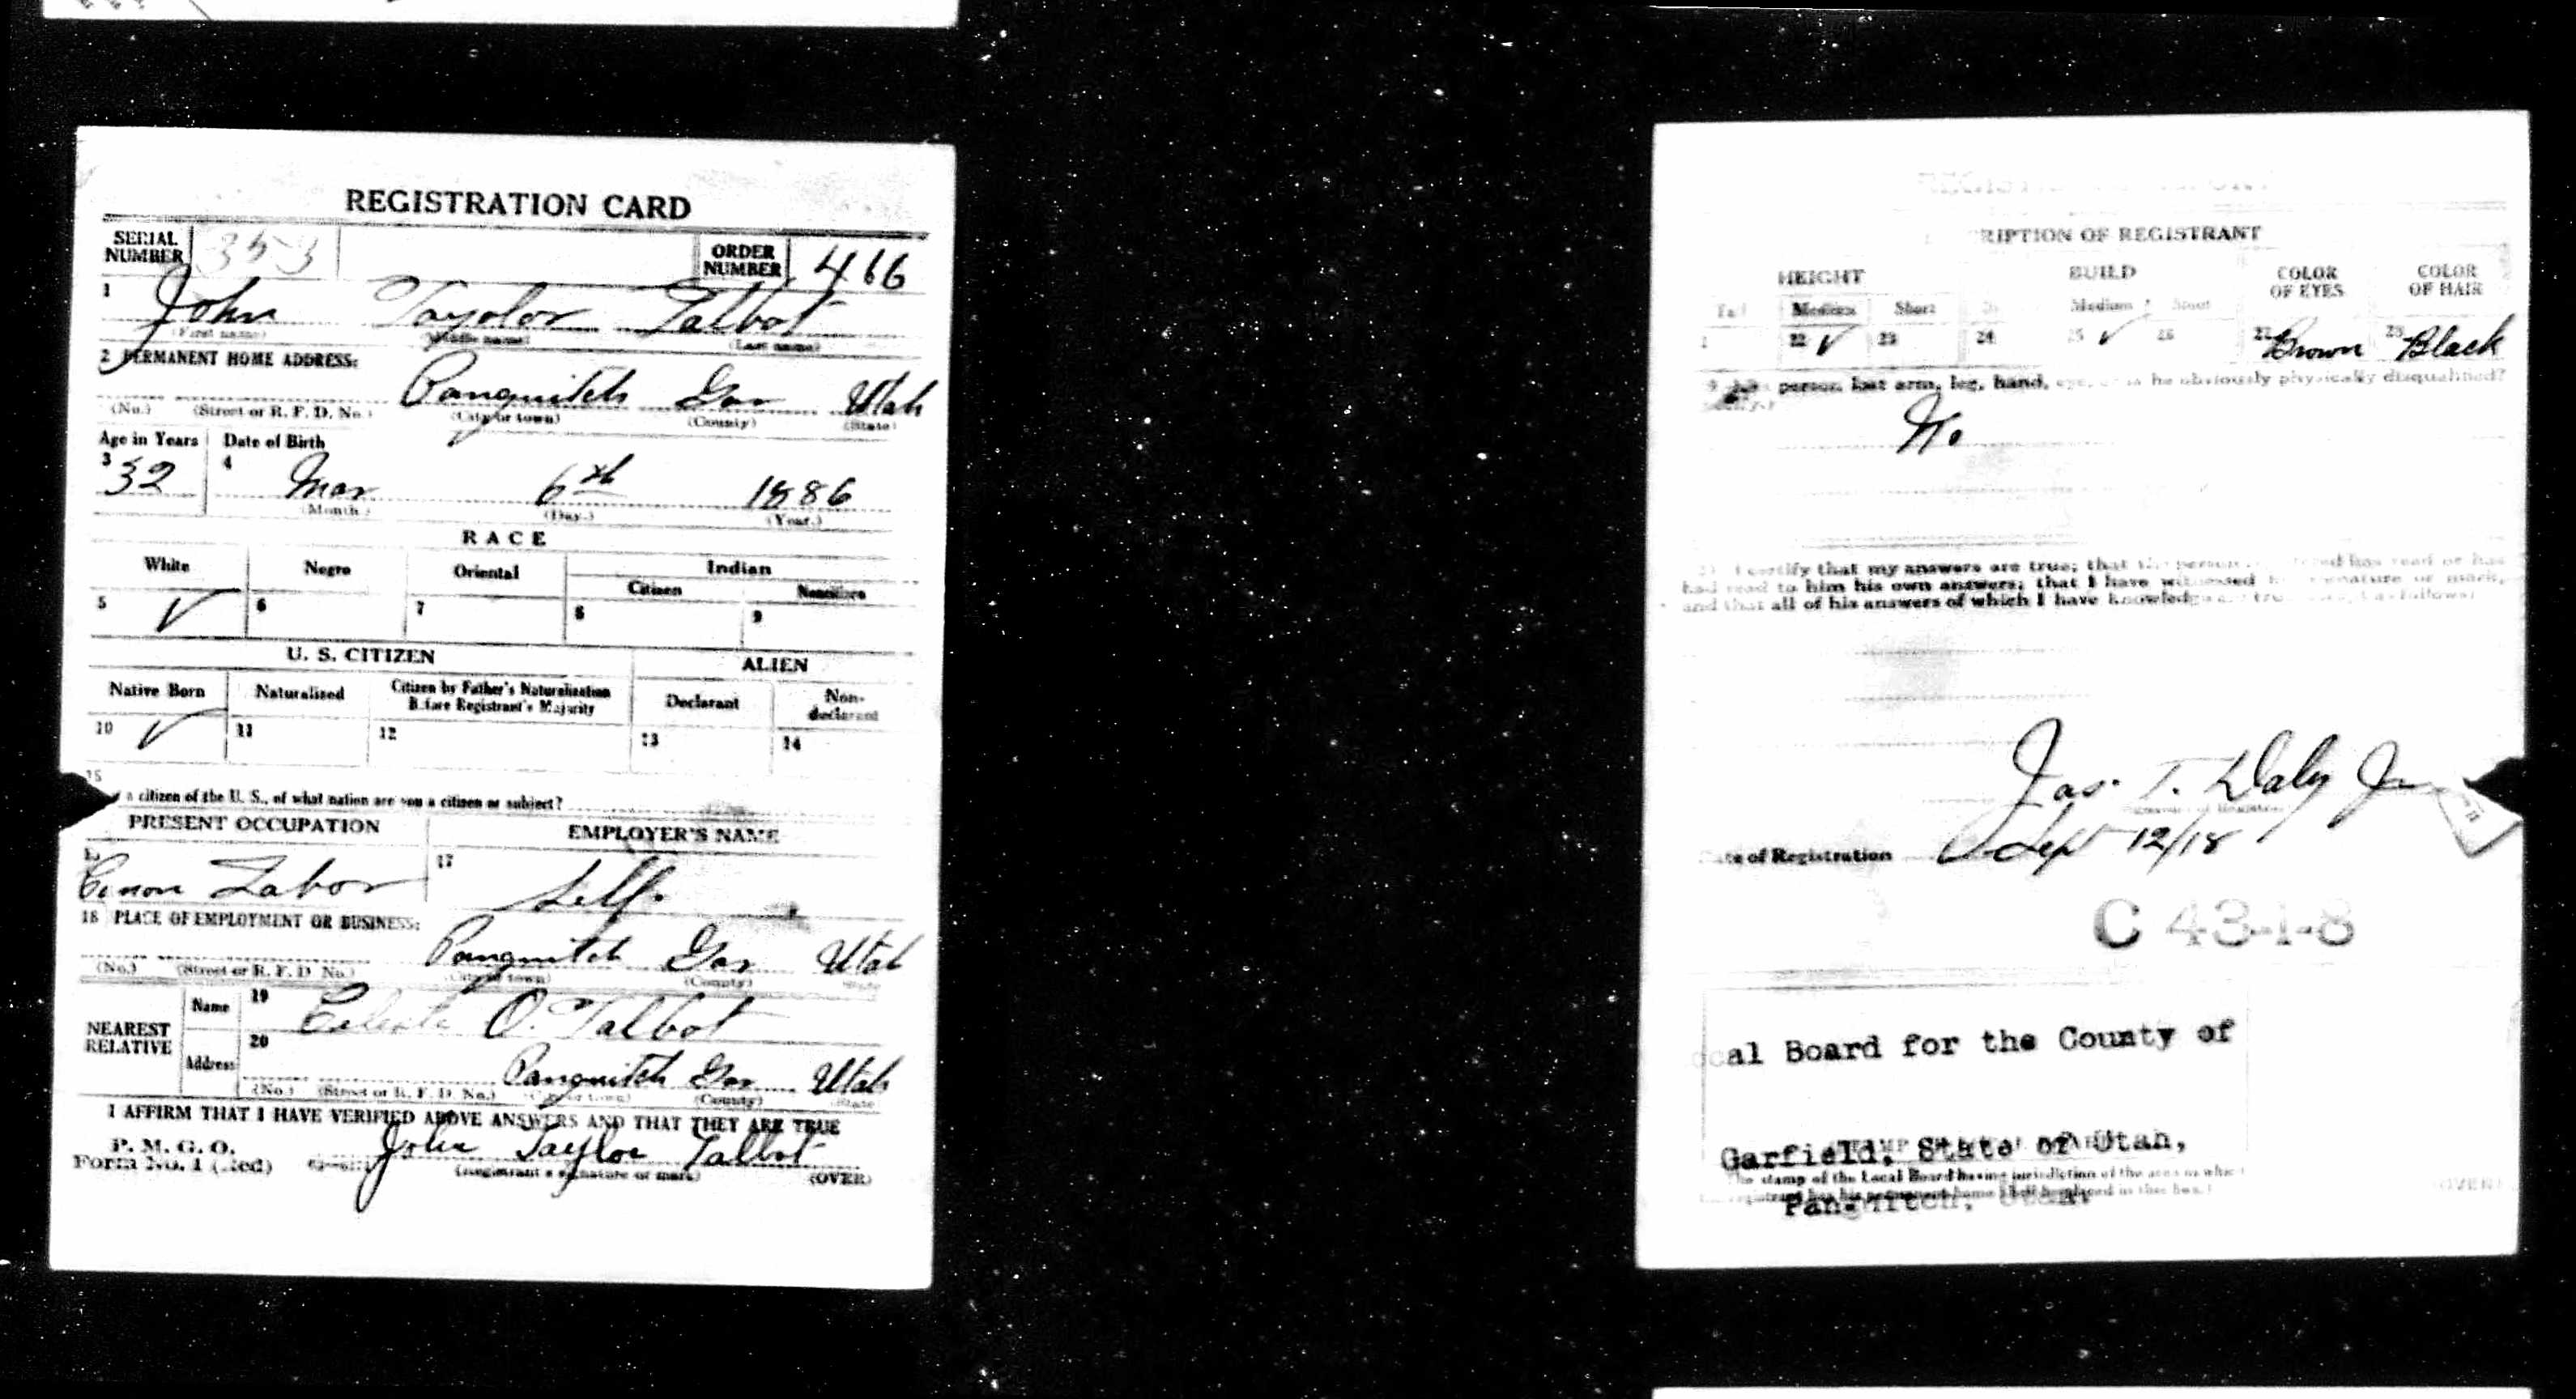 REGISTRATION CARD
SERIAL NUMBER 353 ORDER NUMBER 466
1 John Tayolor Talbot
(First name) (Middle name) (Last name)
2 PERMANENT HOME ADDRESS:
Panguitch Gar Utah
(No.) (Street or R. F. D. No.) (City or town) (County) (State)
Age in Years Date of Birth
3 32 4 Mar 6th 1886
(Month.) (Day.) (Year.)
RACE
White Negro Oriental Indian
Citizen Noncitizen
5 ✓ 6 7 8 9
U. S. CITIZEN ALIEN
Native Born Naturalized Citizen by Father's Naturalization Before Registrant's Majority Declarant Non-declarant
10 ✓ 11 12 13 14
15
a citizen of the U. S., of what nation are you a citizen or subject?
PRESENT OCCUPATION EMPLOYER'S NAME
Labor 17 Self.
18 PLACE OF EMPLOYMENT OR BUSINESS:
Panguitch Gar Utah
(No.) (Street or R. F. D. No.) (City or town) (County) State
NEAREST RELATIVE Name 19 Celesta O. Talbot
Address 20 Panguitch Gar Utah
(No.) (Street or R. F. D. No.) (City or town) (County) State
I AFFIRM THAT I HAVE VERIFIED ABOVE ANSWERS AND THAT THEY ARE TRUE
P. M. G. O.
Form No. 1 (Red) John Taylor Talbot
(Registrant's signature or mark) (OVER)
RIPTION OF REGISTRANT
HEIGHT BUILD COLOR OF EYES COLOR OF HAIR
Tall Medium Short Medium Stout
22 ✓ 23 24 25 ✓ 26 27 Brown 28 Black
person lost arm, leg, hand, eye, or is he obviously physically disqualified?
No
I certify that my answers are true; that the person has read or has
had read to him his own answers; that I have witnessed his signature or mark,
and that all of his answers of which I have knowledge are true, except as follows:
Jas. T. Daly Jr
Date of Registration Sep 12/18
C 43-1-8
cal Board for the County of
Garfield, State of Utah,
The stamp of the Local Board having jurisdiction of the area in which
registrant has his permanent home shall be placed in this box.)
Panguitch, Utah.
(OVER)